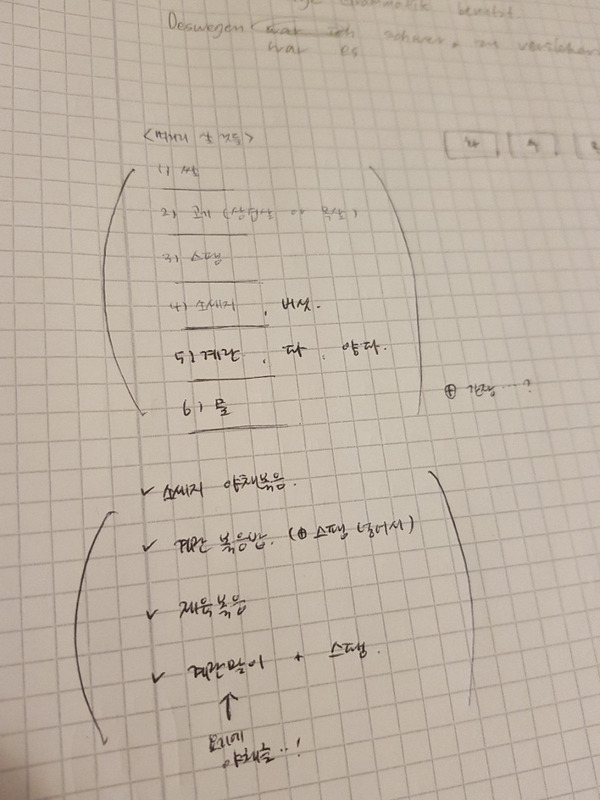 Grammatik benutzt
Deswegen war ich schwer, zu verstehen
war es
1) 쌀
2) 고기 (삼겹살 or 목살)
3) 스팸
4) 소세지, 버섯.
5) 계란, 파, 양파.
6) 물
⊕ 간장....?
✓ 소세지 야채볶음.
✓ 계란 볶음밥. (⊕ 스팸 넣어서)
✓ 제육볶음
✓ 계란말이 + 스팸.
↑
여기에
야채를...!